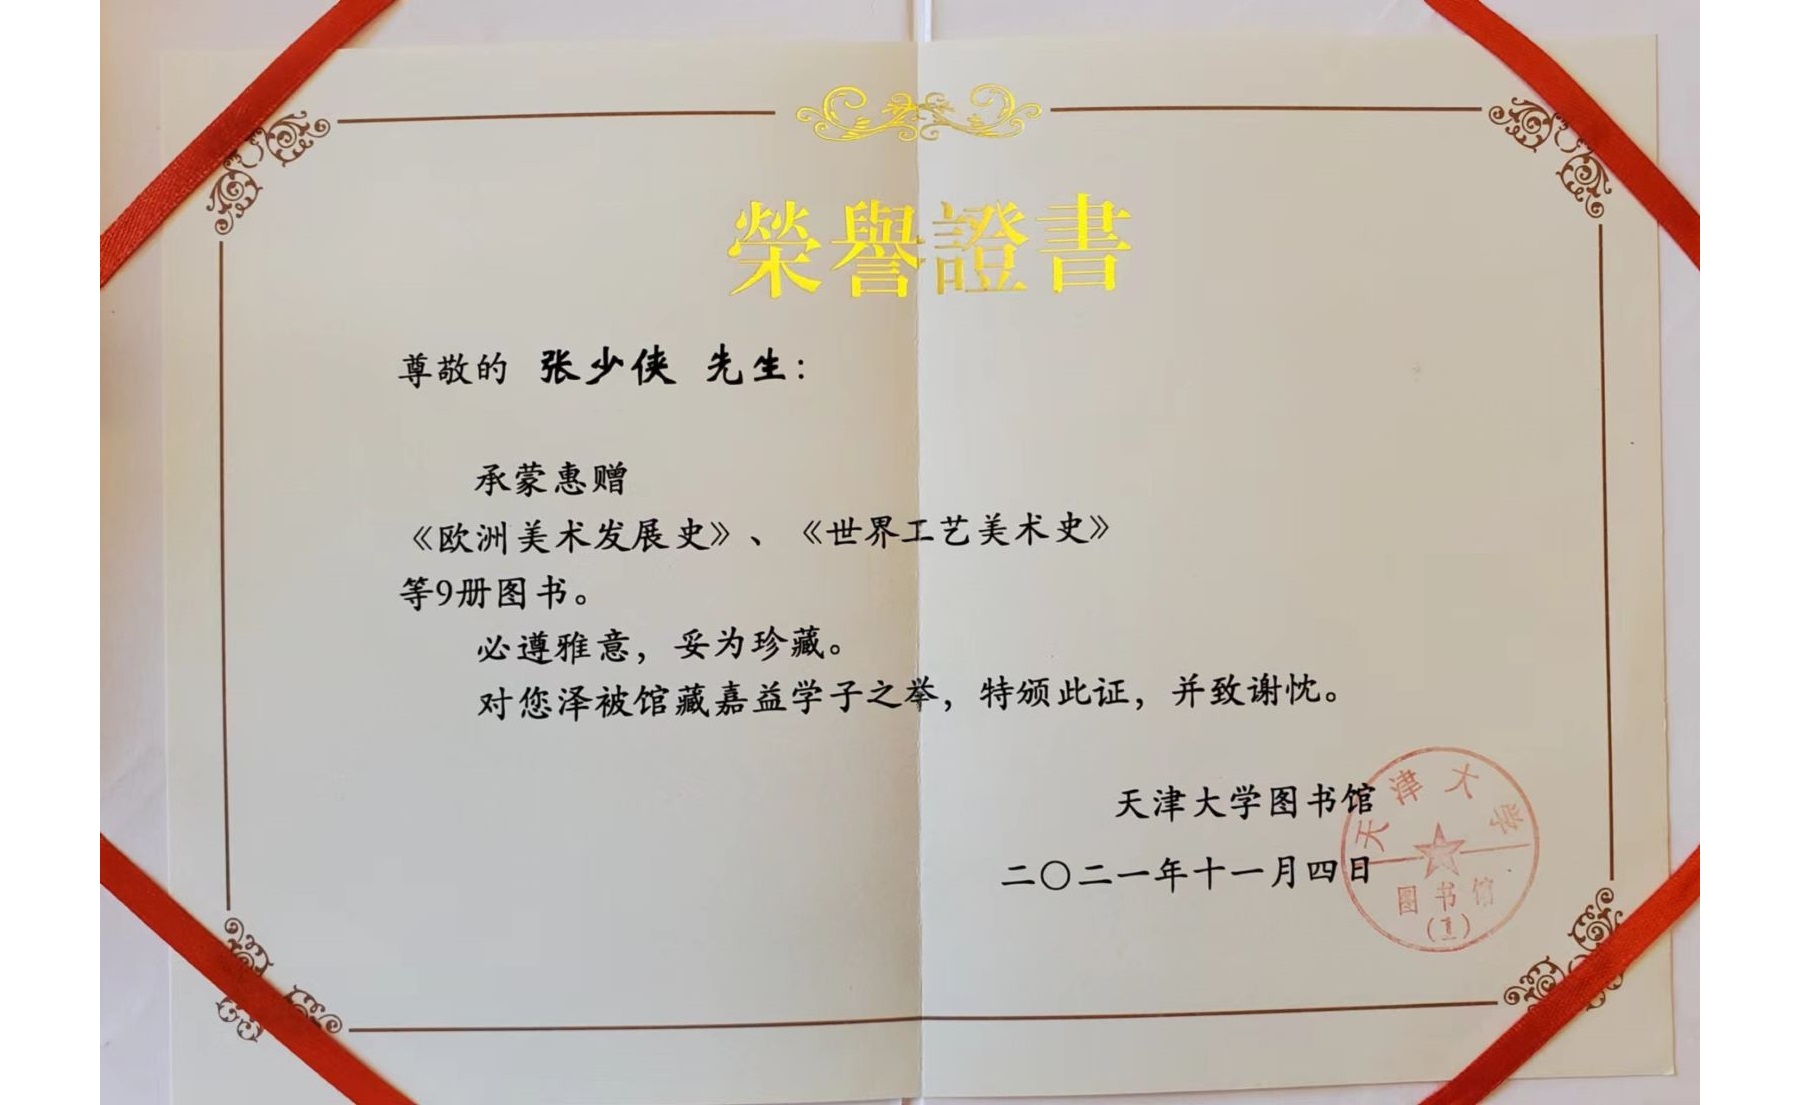 榮譽證書
尊敬的 张少侠 先生：
承蒙惠赠
《欧洲美术发展史》、《世界工艺美术史》
等9册图书。
必遵雅意，妥为珍藏。
对您泽被馆藏嘉益学子之举，特颁此证，并致谢忱。
天津大学图书馆
二〇二一年十一月四日
天津大学
图书馆
(1)